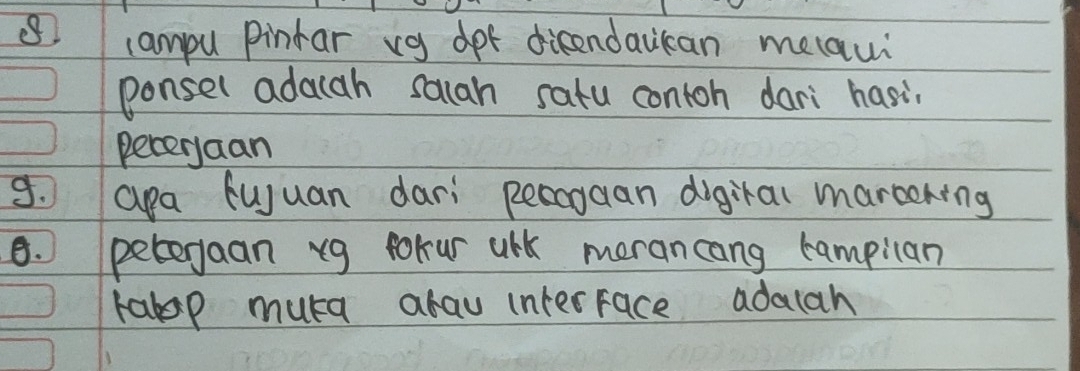 8. lampu pintar yg dpt dikendalikan melalui
ponsel adalah salah satu contoh dari hasil
pekerjaan
9. apa tujuan dari pekerjaan digital marketing
0. pekerjaan yg fokus utk merancang tampilan
tatap muka atau interface adalah